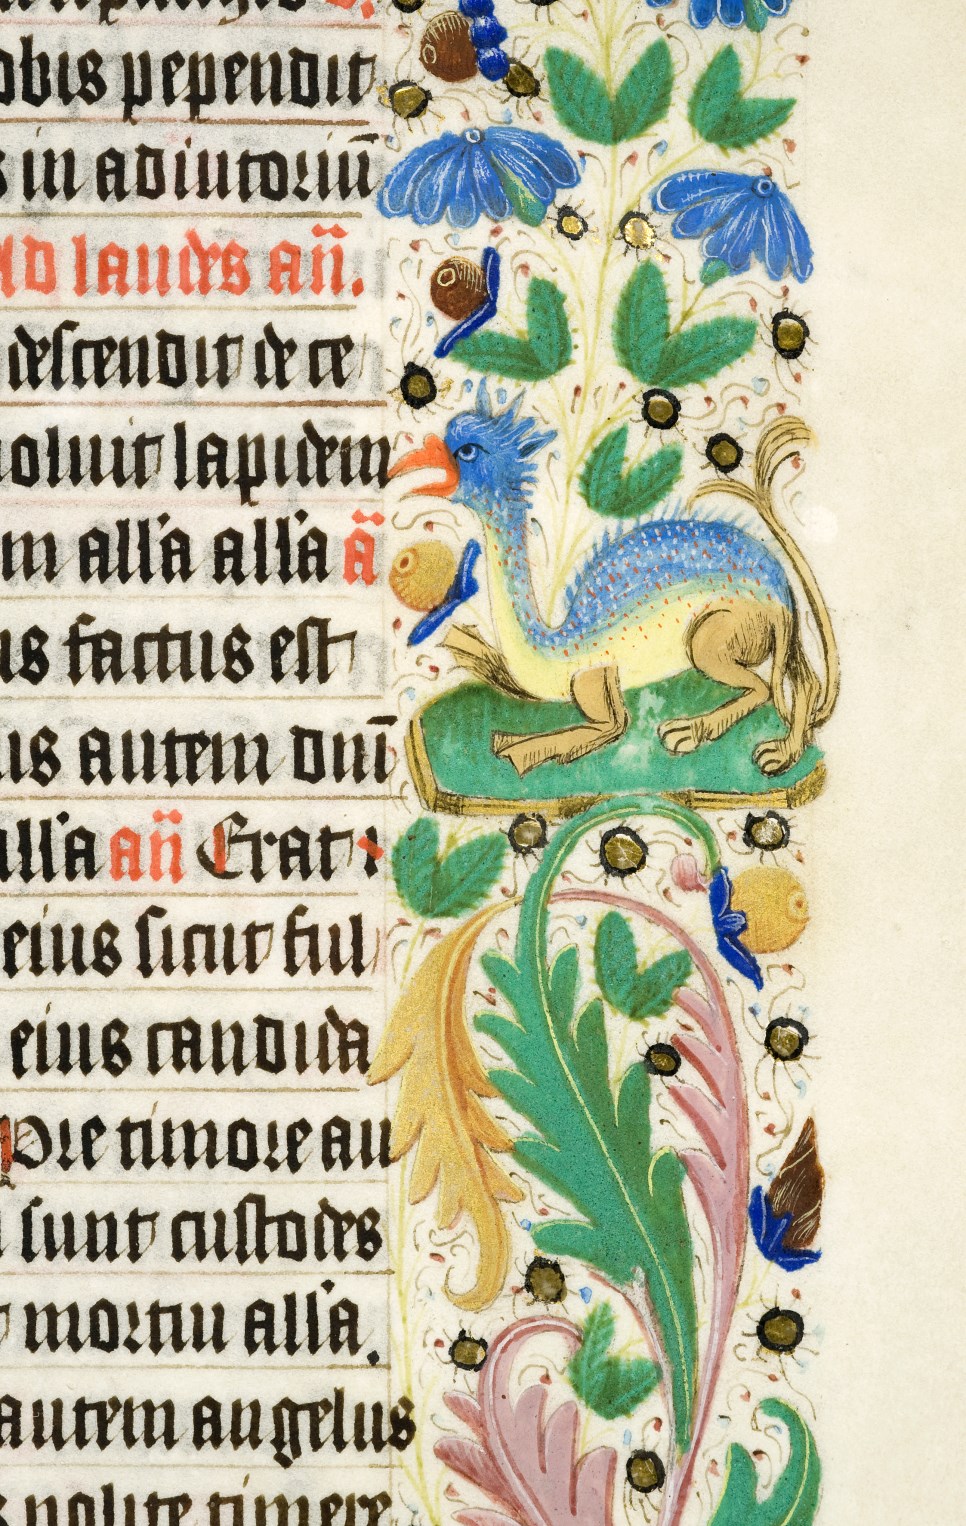 obis pependit
s in adiutoriū
Ad laudes añ.
descendit de ce
uoluit lapidem
m all'a all'a a
us factus est
us autem dnī
all'a añ Erat
eius sicut ful
eius candida
Pre timore au
sunt custodes
mortui all'a.
autem angelus
nolite timere